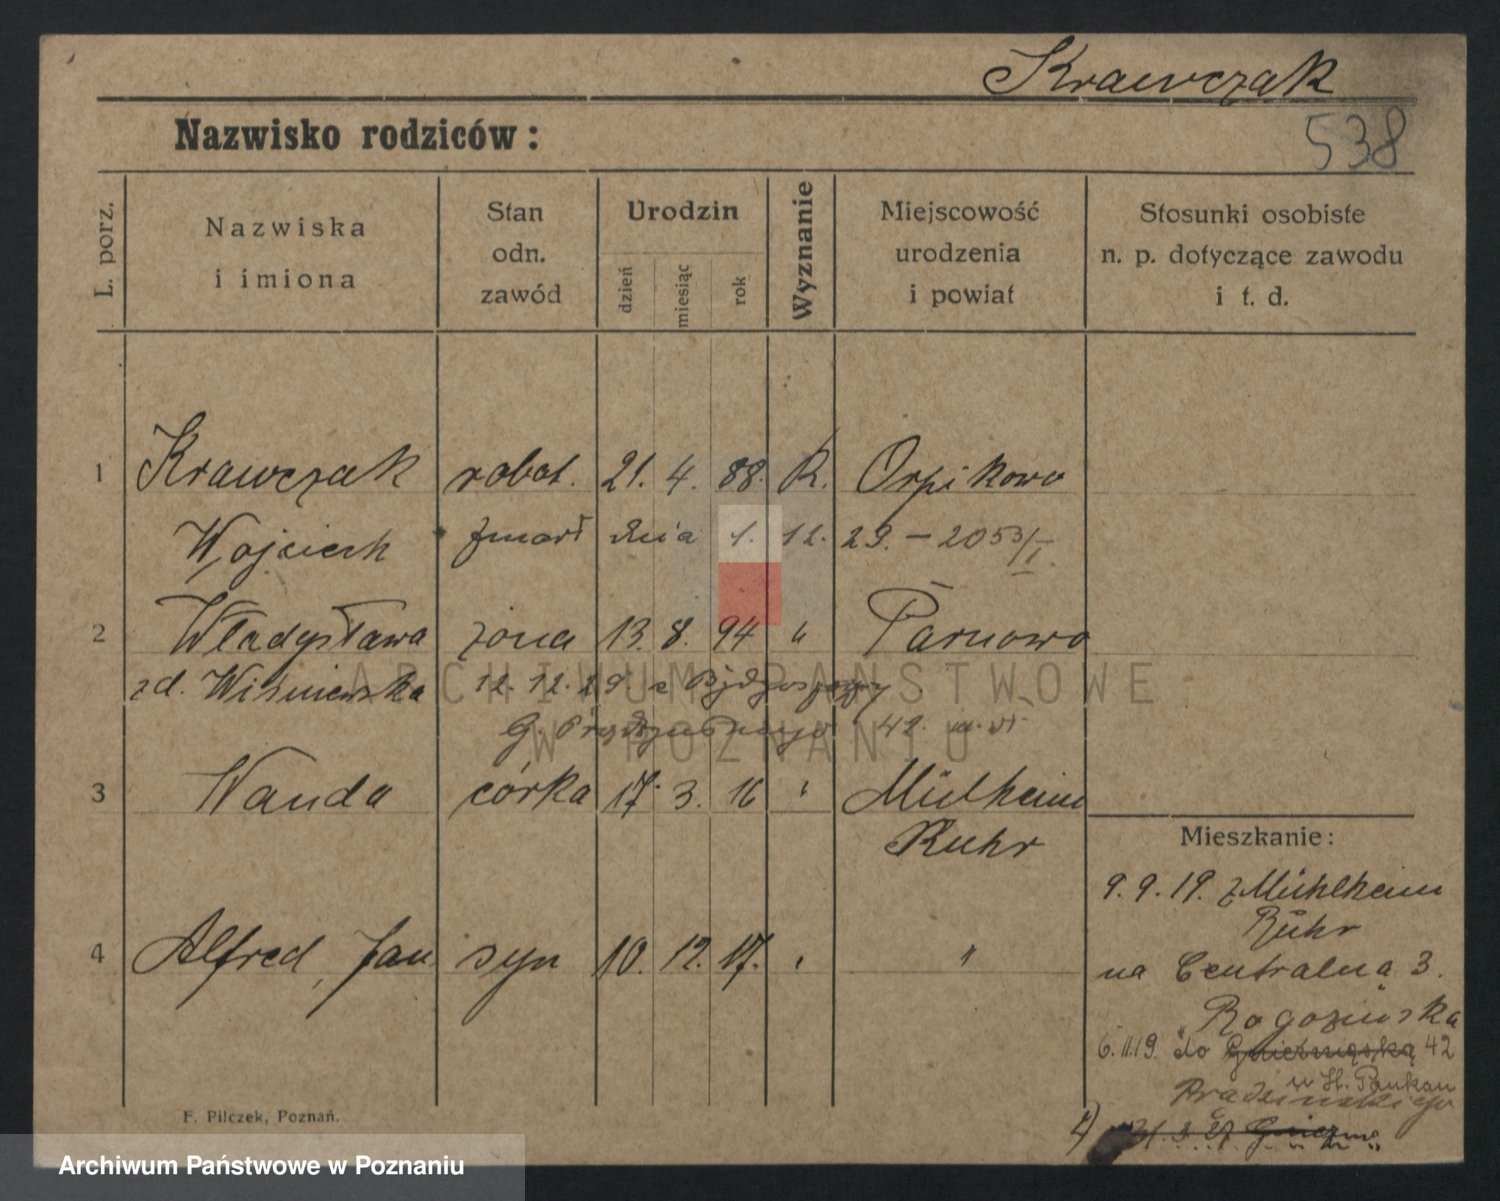 Krawczak
Nazwisko rodziców:
538
L. porz.
Nazwiska
i imiona
Stan
odn.
zawód
Urodzin
dzień
miesiąc
rok
Wyznanie
Miejscowość
urodzenia
i powiat
Stosunki osobiste
n. p. dotyczące zawodu
i t. d.
1 Krawczak robot. 21. 4. 88. R. Orpikowo
Wojciech zmarł dnia 1. 12. 29. – 2053/I
2 Władysława żona 13. 8. 94 " Parnowo
zd. Wiśniewska 12. 12. 29 z Bydgoszczy
42.
3 Wanda córka 17. 3. 16 " Mülheim
Ruhr
4 Alfred, Jan syn 10. 12. 17. " "
Mieszkanie:
9. 9. 19. z Mühlheim
Ruhr
na Centralną 3.
u Rogozińska
6. 11. 19. do Gnieźnieńską 42
u St.
Prądzińskiego
F. Pilczek, Poznań.
ARCHIWUM PAŃSTWOWE
W POZNANIU
Archiwum Państwowe w Poznaniu